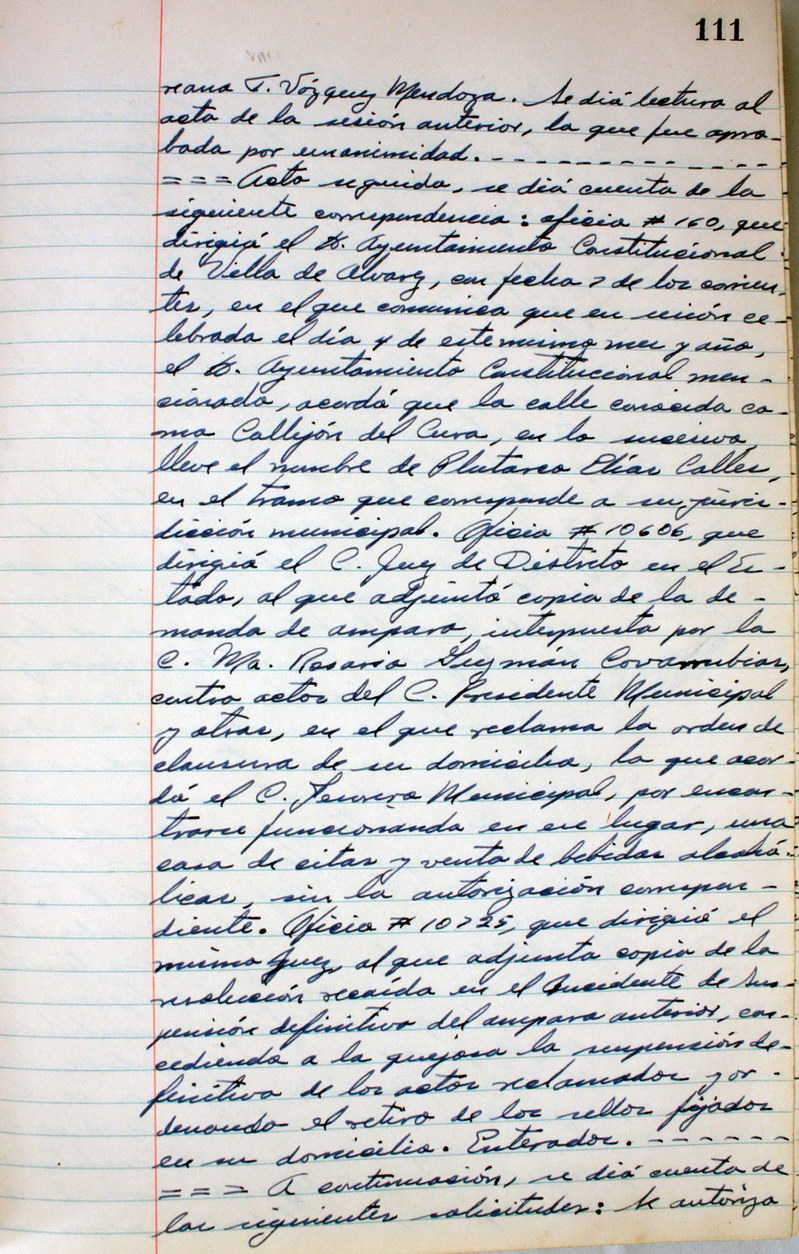 111
reana T. Vázquez Mendoza. Se dió lectura al
acta de la sesión anterior, la que fue apro-
bada por unanimidad. - - - - - - - - - - - - -
= = = Acto seguido, se dió cuenta de la
siguiente correspondencia: oficio # 160, que
dirigió el H. Ayuntamiento Constitucional
de Villa de Alvarez, con fecha 7 de los corrien-
tes, en el que comunica que en sesión ce-
lebrada el día 4 de este mismo mes y año,
el H. Ayuntamiento Constitucional men-
cionado, acordó que la calle conocida co-
mo Callejón del Cura, en lo sucesivo,
lleve el nombre de Plutarco Elías Calles,
en el tramo que corresponde a su juris-
dicción municipal. Oficio # 10606, que
dirigió el C. Juez de Distrito en el Es-
tado, al que adjuntó copia de la de-
manda de amparo, interpuesta por la
C. Ma. Rosario Guzmán Covarrubias,
contra actos del C. Presidente Municipal
y otros, en el que reclama la orden de
clausura de su domicilio, la que acor-
dó el C. Tesorero Municipal, por encon-
trarse funcionando en ese lugar, una
casa de citas y venta de bebidas alcohó-
licas, sin la autorización correspon-
diente. Oficio # 10725, que dirigió el
mismo Juez, al que adjunta copia de la
resolución recaída en el Incidente de Sus-
pensión definitiva del amparo anterior, con-
cediendo a la quejosa la suspensión de-
finitiva de los actos reclamados y or-
denando el retiro de los sellos fijados
en su domicilio. Enterados. - - - - - - -
= = = A continuación, se dió cuenta de
las siguientes solicitudes: Se autoriza